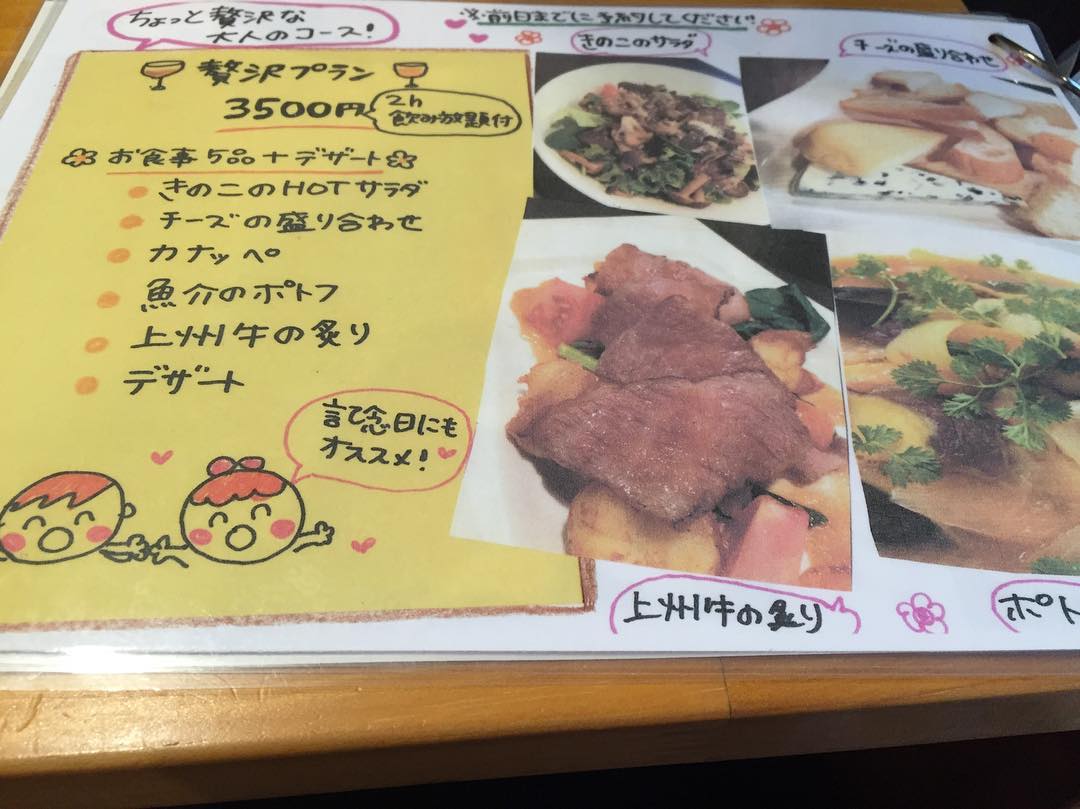 ちょっと贅沢な
大人のコース!
※前日までに予約してください
贅沢プラン
3500円
2h
飲み放題付
お食事5品+デザート
きのこのHOTサラダ
チーズの盛り合わせ
カナッペ
魚介のポトフ
上州牛の炙り
デザート
記念日にも
オススメ!
きのこのサラダ
チーズの盛り合わせ
上州牛の炙り
ポト